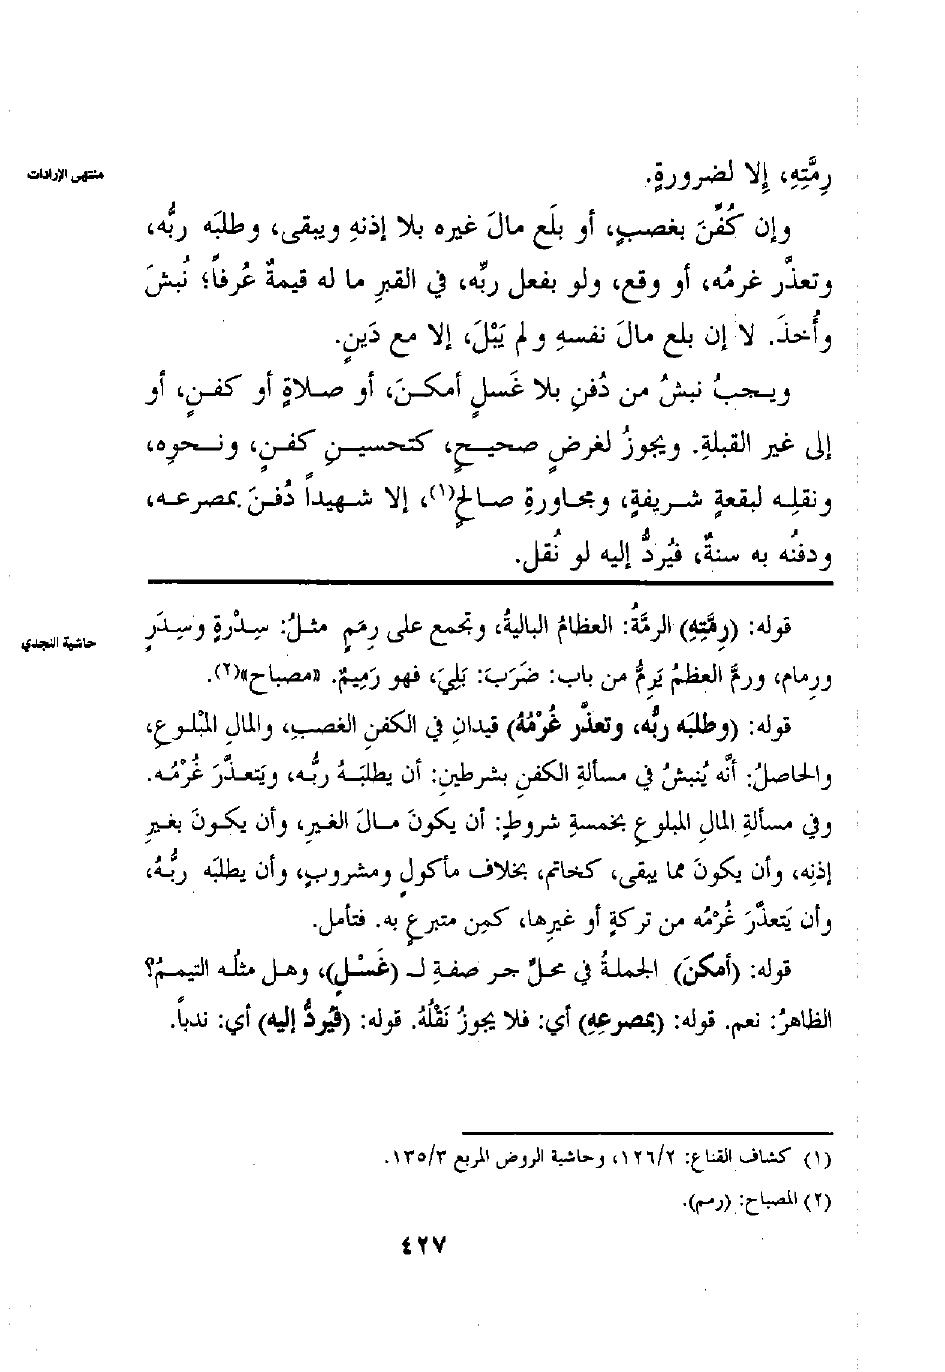 منتهى الإرادات
رِمَّتِهِ، إِلا لضرورةٍ.
وإن كُفِّنَ بغصبٍ، أو بلَع مالَ غيره بلا إذنهِ ويبقى، وطلبَه ربُّه،
وتعذَّر غرمُه، أو وقع، ولو بفعل ربِّه، في القبرِ ما له قيمةٌ عُرفاً؛ نُبشَ
وأُخذَ. لا إن بلع مالَ نفسهِ ولم يَبْلَ، إلا مع دَينٍ.
ويجبُ نبشُ من دُفنِ بلا غَسلٍ أمكنَ، أو صلاةٍ أو كفنٍ، أو
إلى غير القبلةِ. ويجوزُ لغرضٍ صحيحٍ، كتحسينِ كفنٍ، ونحوِه،
ونقلِه لبقعةٍ شريفةٍ، ومجاورةِ صالحٍ(١)، إلا شهيداً دُفنَ بمصرعه،
ودفنُه به سنةٌ، فيُردُّ إليه لو نُقل.
حاشية النجدي
قوله: (رِمَّتِهِ) الرمَّةُ: العظامُ الباليةُ، وتجمع على رِمَمٍ مثلُ: سِدْرةٍ وسِدَرٍ
ورِمام، ورمَّ العظمُ يَرِمُّ من باب: ضَرَبَ: بَلِيَ، فهو رَمِيمٌ. «مصباح»(٢).
قوله: (وطلبَه ربُّه، وتعذَّر غُرْمُهُ) قيدانِ في الكفنِ الغصبِ، والمالِ المبْلوعِ،
والحاصلُ: أنَّه يُنبشُ في مسألةِ الكفنِ بشرطينِ: أن يطلبَهُ ربُّه، ويَتعذَّرَ غُرْمُه.
وفي مسألةِ المالِ المبلوعِ بخمسةِ شروطٍ: أن يكونَ مالَ الغيرِ، وأن يكونَ بغيرِ
إذنِه، وأن يكونَ مما يبقى، كخاتمٍ، بخلاف مأكولٍ ومشروبٍ، وأن يطلبَه ربُّهُ،
وأن يَتعذَّرَ غُرْمُه من تركةٍ أو غيرِها، كمِن متبرعٍ به. فتأمل.
قوله: (أمكنَ) الجملةُ في محلِّ جر صفةٍ لـ (غَسْلٍ)، وهل مثلُه التيممُ؟
الظاهرُ: نعم. قوله: (بمصرعِهِ) أي: فلا يجوزُ نَقْلُهُ. قوله: (فيُردُّ إليه) أي: ندباً.
(١) كشاف القناع: ١٢٦/٢، وحاشية الروض المربع ١٣٥/٣.
(٢) المصباح: (رمم).
٤٢٧